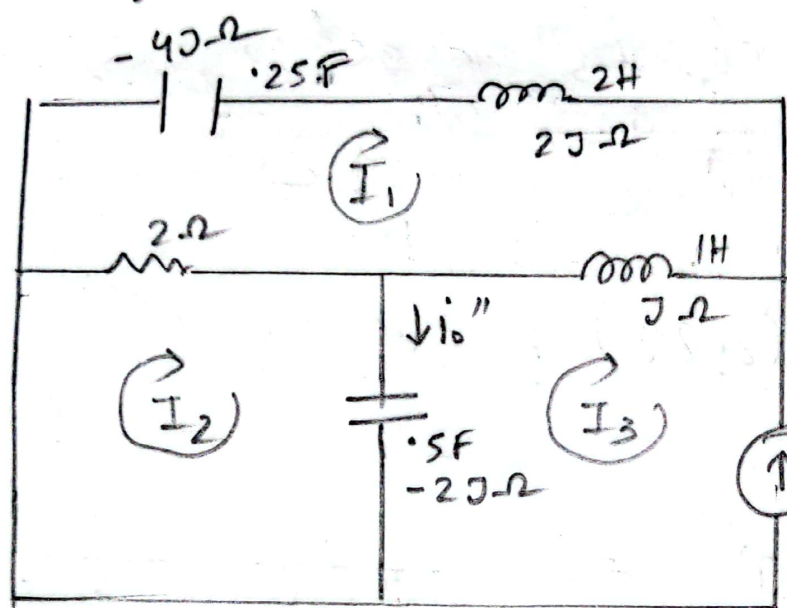 - 4J Ω
.25F
2H
2J Ω
I₁
2Ω
1H
J Ω
↓i₀"
I₂
I₃
.5F
-2JΩ